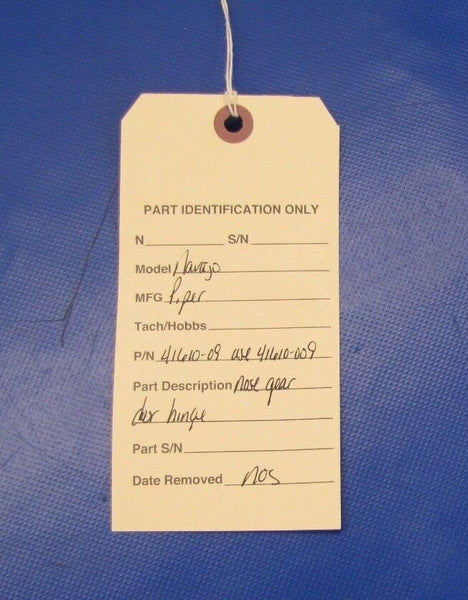 PART IDENTIFICATION ONLY
N S/N
Model Navajo
MFG Piper
Tach/Hobbs
P/N 41610-09 use 41610-009
Part Description nose gear
door hinge
Part S/N
Date Removed nos